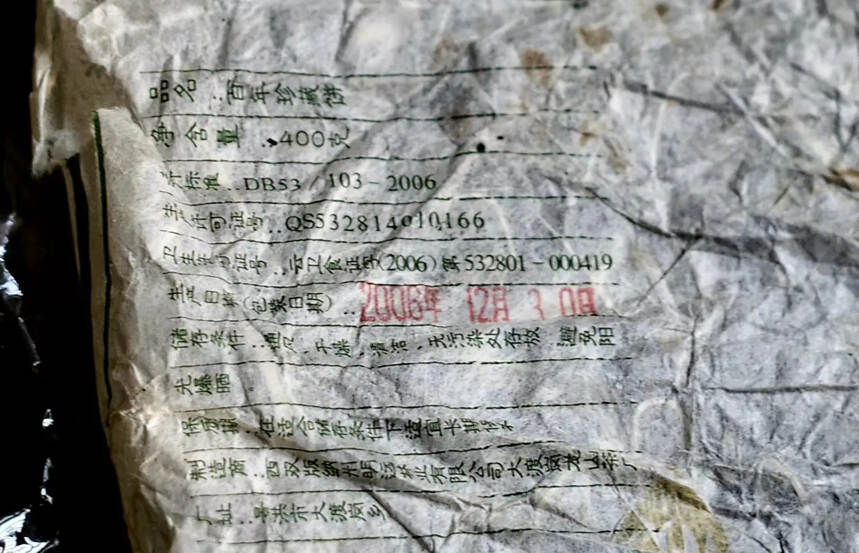 品名：百年珍藏饼
净含量：400克
标准：DB53/103-2006
生产许可证号：QS532814010166
卫生许可证号：云卫食证字(2006)第532801-000419
生产日期(包装日期)：2006年 12月 30日
储存条件：通风、干燥、清洁、无污染处存放 避免阳
光曝晒
保质期：在适合储存条件下适宜长期
制造商：西双版纳 有限公司大渡岗龙山茶厂
厂址：景洪市大渡岗乡